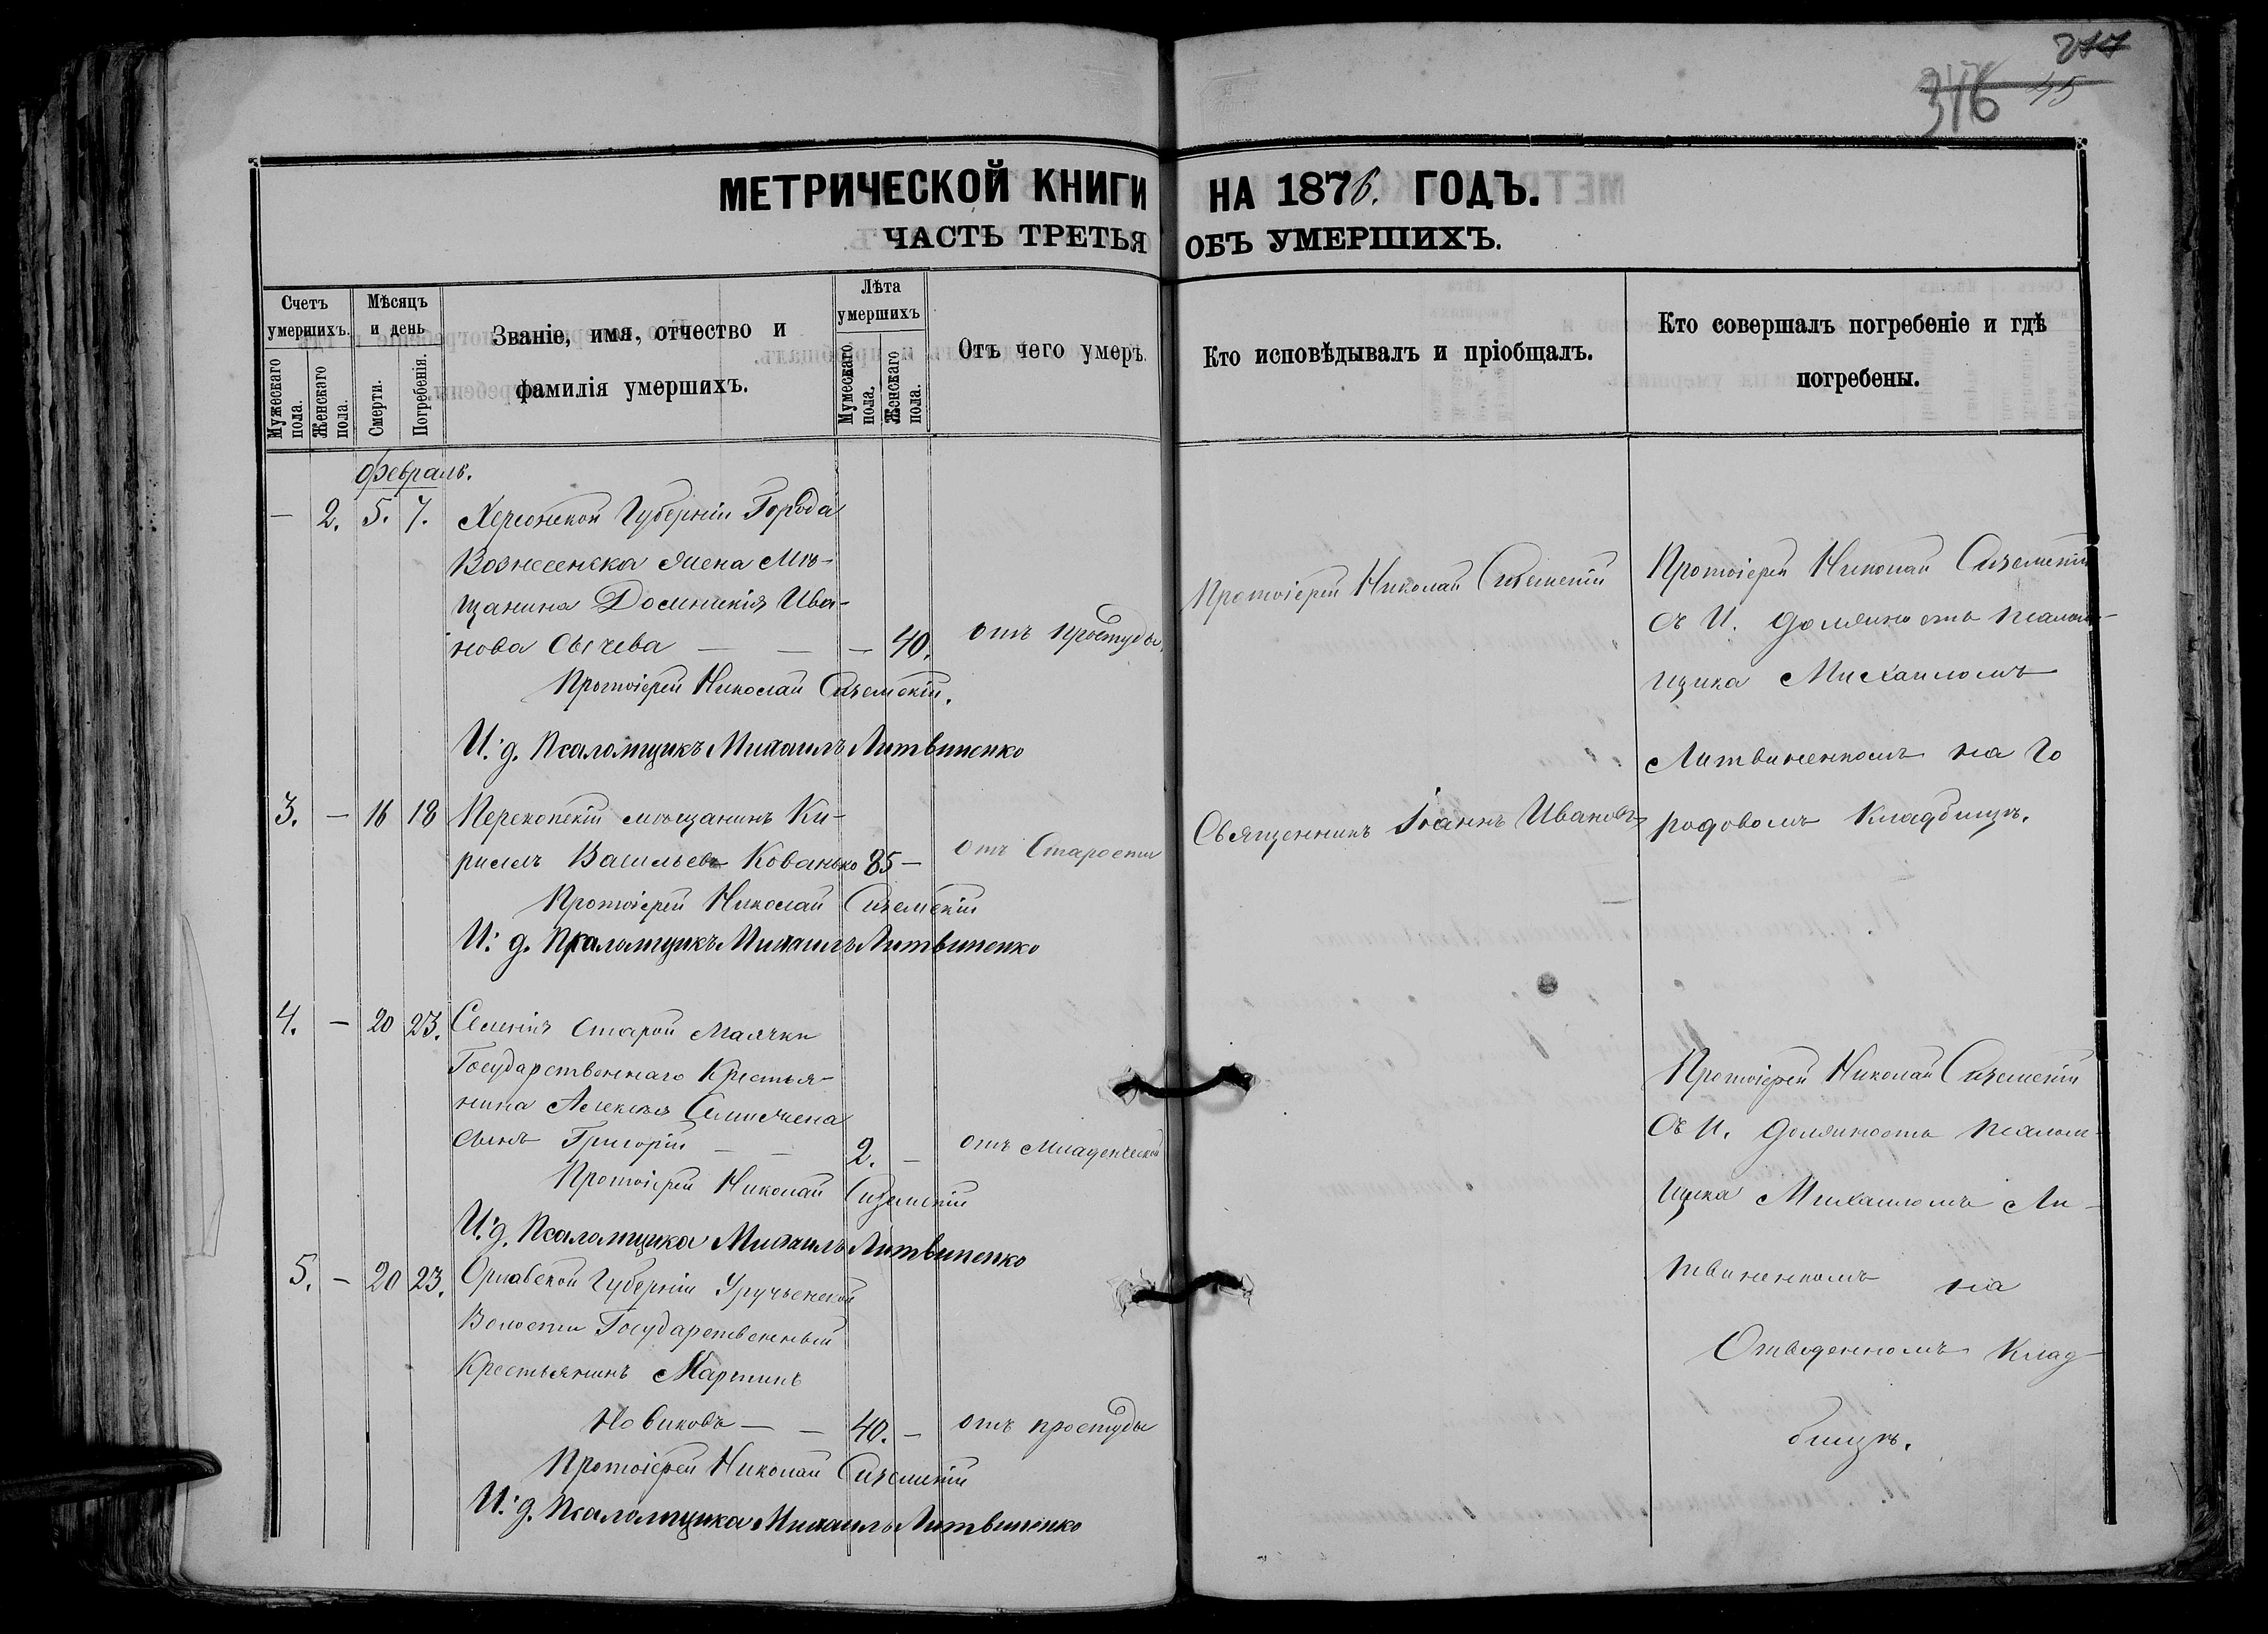 45
316
МЕТРИЧЕСКОЙ КНИГИ НА 1876. ГОДЪ.
ЧАСТЬ ТРЕТЬЯ ОБЪ УМЕРШИХЪ.
Счетъ умершихъ.
Мужескаго пола.
Женскаго пола.
Мѣсяцъ и день
Смерти.
Погребенія.
Званіе, имя, отчество и
фамилія умершихъ.
Лѣта умершихъ
Мужескаго пола.
Женскаго пола.
Отъ чего умеръ.
Кто исповѣдывалъ и пріобщалъ.
Кто совершалъ погребеніе и гдѣ
погребены.
Февраль.
— 2. 5. 7. Херсонской Губерніи Города
Вознесенска жена Мѣ-
щанина Домникія Ива-
нова Сычева — — — 40. отъ простуды
Протоіерей Николай Сиземскій.
И. д. Псаломщикъ Михаилъ Литвиненко
3. — 16 18 Перекопскій мѣщанинъ Ки-
риллъ Васильевъ Кованько 85 — отъ Старости
Протоіерей Николай Сиземскій
И. д. Псаломщикъ Михаилъ Литвиненко
4. — 20 23. Селенія Старой Маячки
Государственнаго Крестья-
нина Алексѣя
сынъ Григорій — — 2. — отъ Младенческой
Протоіерей Николай Сиземскій
И. д. Псаломщика Михаилъ Литвиненко
5. — 20 23. Орловской Губерніи Уручьенской
Волости Государственный
Крестьянинъ Мартинъ
Новиковъ — — 40. — отъ простуды
Протоіерей Николай Сиземскій
И. д. Псаломщика Михаилъ Литвиненко
Протоіерей Николай Сиземскій
Священникъ Іоаннъ Ивановъ
Протоіерей Николай Сиземскій
съ И. должность псалом-
щика Михаиломъ
Литвиненкомъ на Го
родовомъ Кладбищѣ.
Протоіерей Николай Сиземскій
съ И. должность псалом-
щика Михаиломъ Ли-
твиненкомъ на
Отведенномъ Клад-
бищѣ.